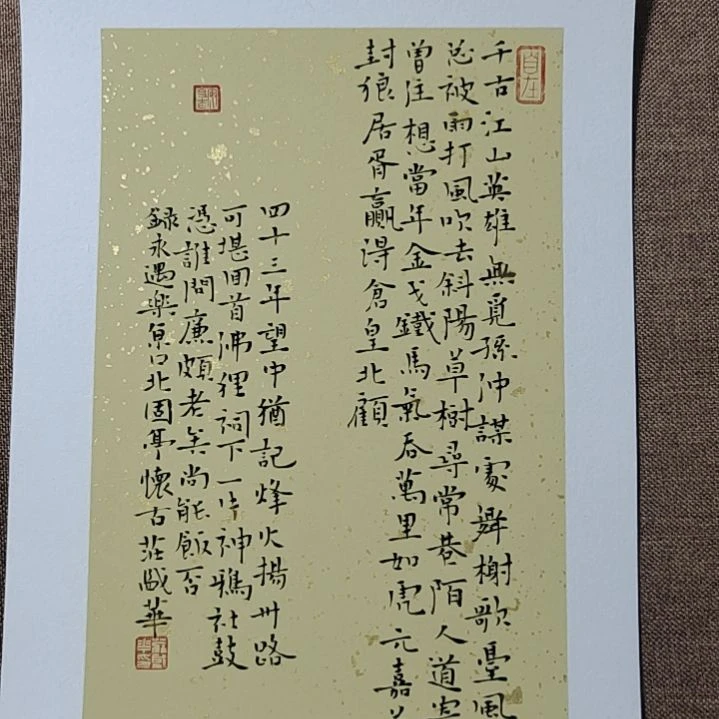 千古江山英雄無覓孫仲謀處舞榭歌臺風
總被雨打風吹去斜陽草樹尋常巷陌人道寄
曾住想當年金戈鐵馬氣吞萬里如虎元嘉
封狼居胥贏得倉皇北顧
四十三年望中猶記烽火揚州路
可堪回首沸狸祠下一片神鴉社鼓
憑誰問廉頗老矣尚能飯否
録永遇樂京口北固亭懷古莊
華